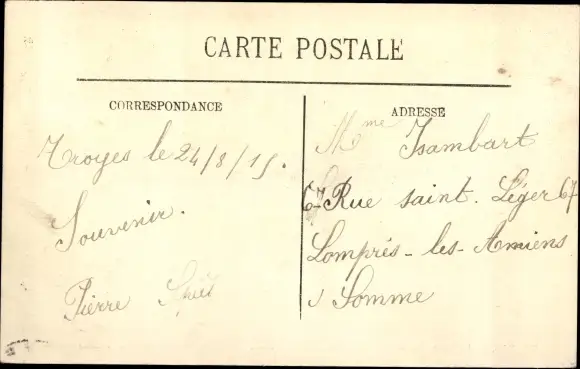 CARTE POSTALE
CORRESPONDANCE
Troyes le 24/8/15.
Souvenir.
Pierre
ADRESSE
Mme Isambart
67 Rue saint. Léger 67
Lomprés-les-Amiens
Somme